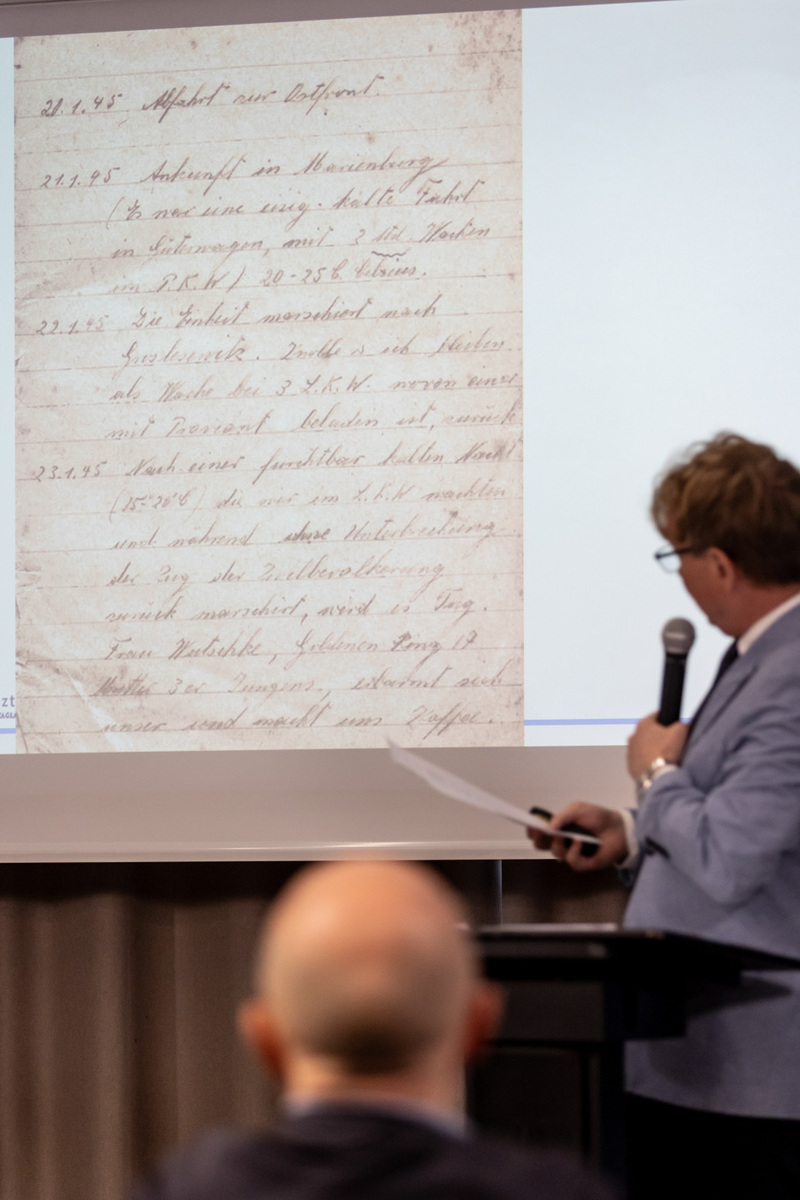 20.1.45 Abfahrt zur Ostfront.
21.1.45 Ankunft in Marienburg
(Es war eine eisig. kalte Fahrt
in Güterwagen, mit 2 Std. Warten
im P.K.W) 20-25 C Celsius.
22.1.45 Die Einheit marschiert nach
ich bleiben
als Wache bei 3 L.K.W. wovon einer
mit Proviant beladen ist, zurück
23.1.45 Nach einer furchtbar kalten Nacht
(15-20°C) die wir im L.K.W machten
und während ohne Unterbrechung
der Zug der Zivilbevölkerung
zurück marschiert, wird es Tag.
Frau Wutschke, 17
Mutter 3er Jungens, erbarmt sich
unser und macht uns Kaffee.
zt